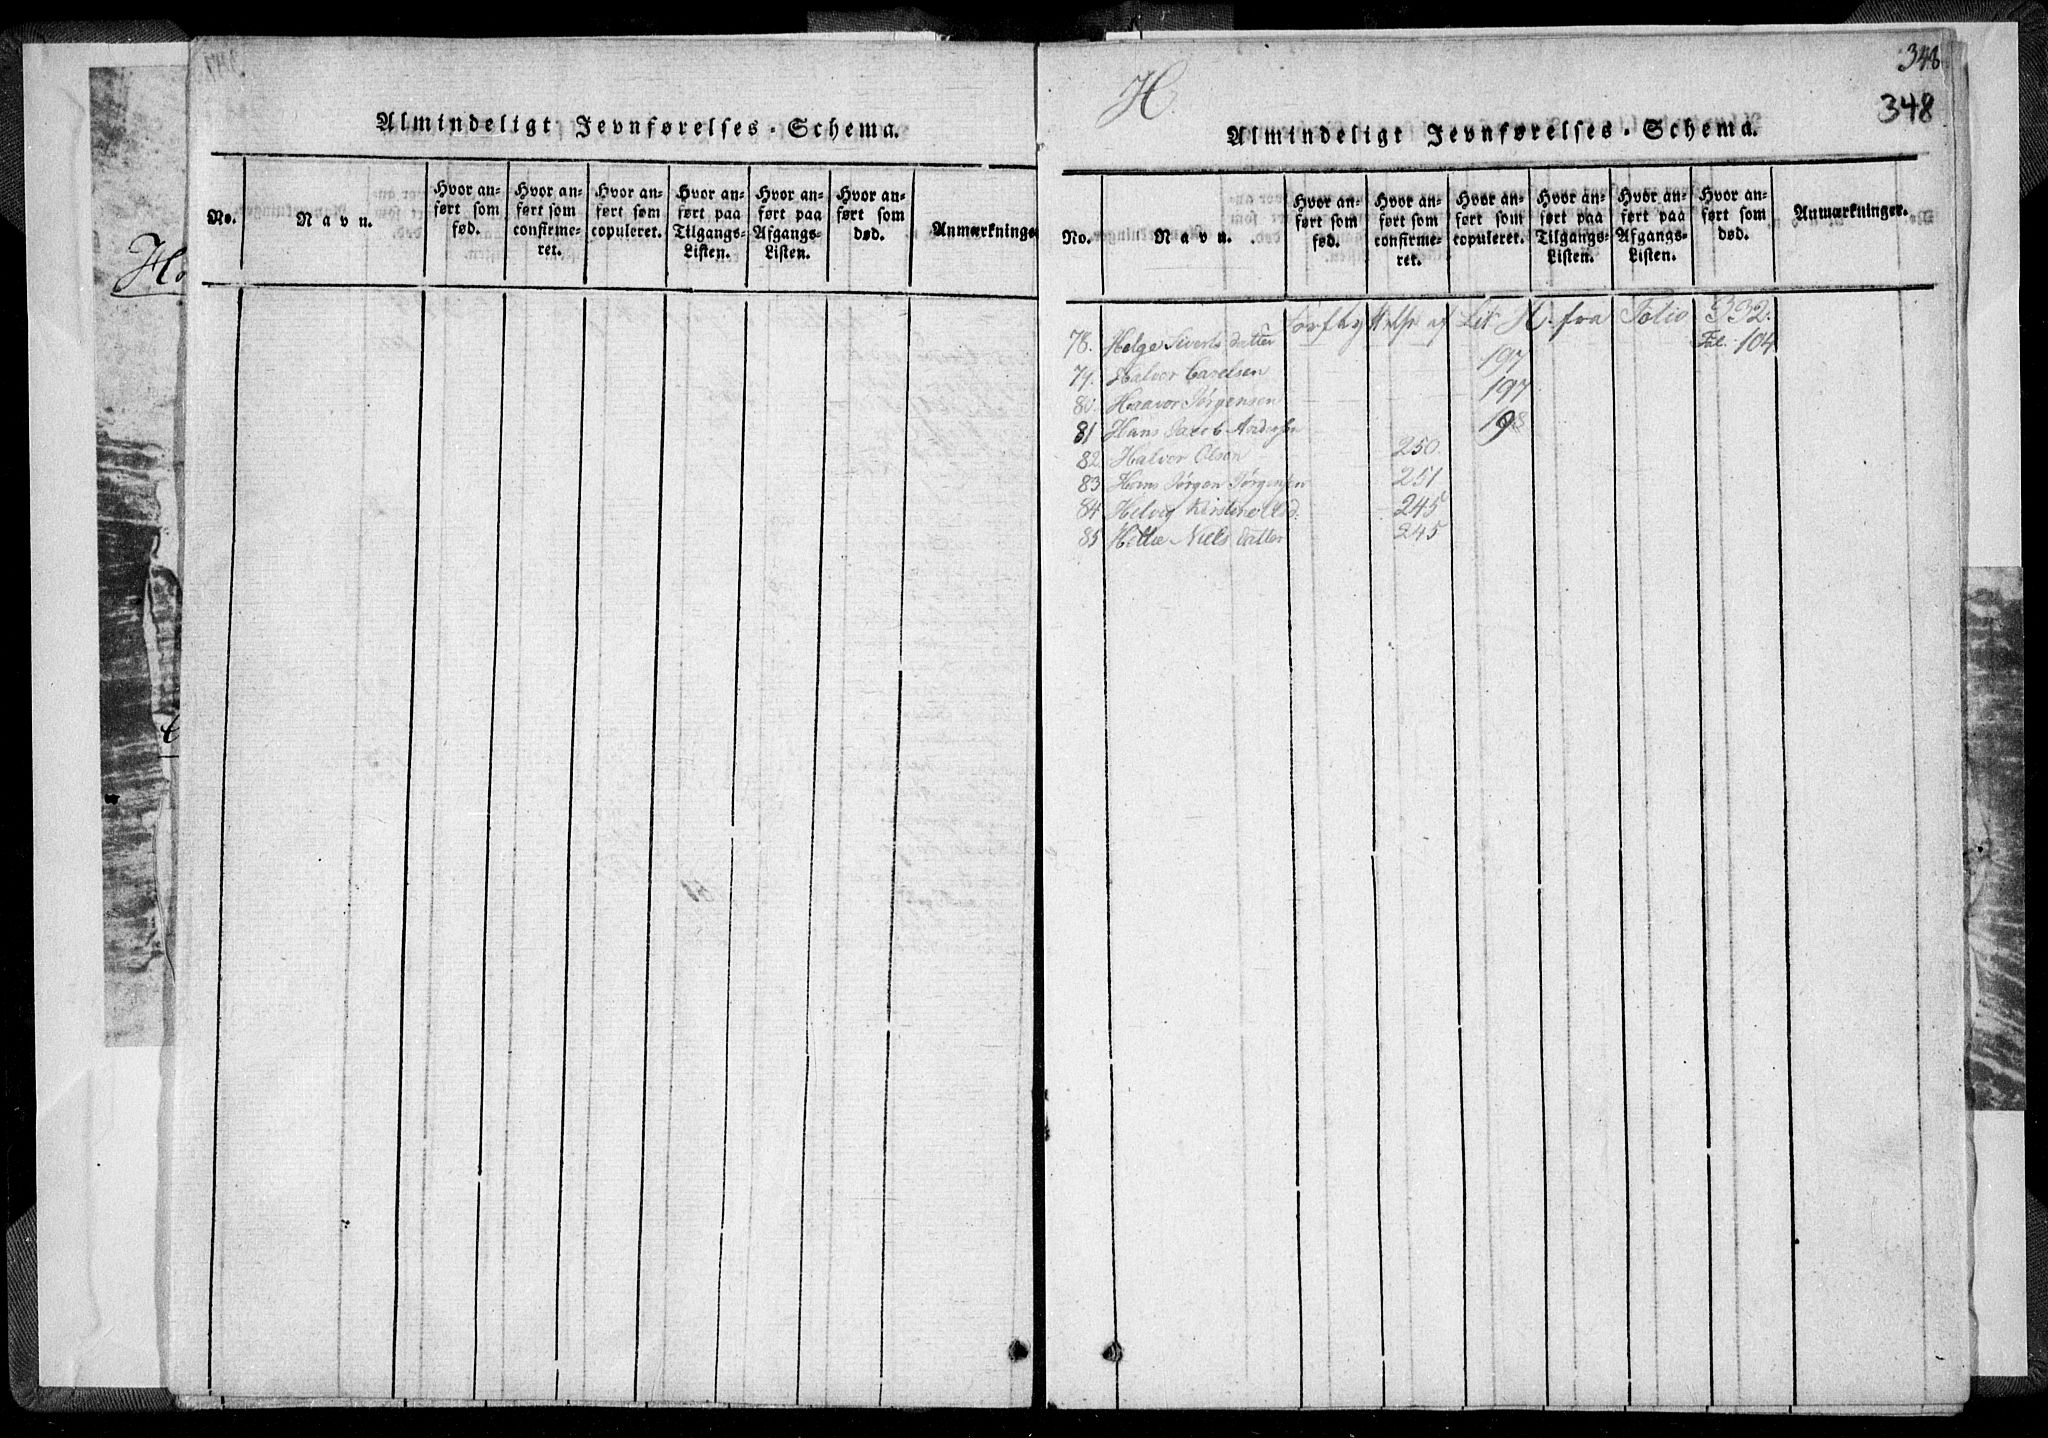 Almindeligt Jevnførelses-Schema.
No.
Navn.
Hvor an-
ført som
fød.
Hvor an-
ført som
confirme-
ret.
Hvor an-
ført søm
copuleret.
Hvor an-
ført paa
Tilgangs-
Listen.
Hvor an-
ført paa
Afgangs-
Listen.
Hvor an-
ført som
død.
Anmærkninge
H.
348
348
Almindeligt Jevnførelses-Schema.
No.
Navn.
Hvor an-
ført som
fød.
Hvor an-
ført som
confirme-
ret.
Hvor an-
ført som
copuleret.
Hvor an-
ført paa
Tilgangs-
Listen.
Hvor an-
ført paa
Afgangs-
Listen.
Hvor an-
ført som
død.
Anmærkninger.
af Lit H. fra Folio 332.
78. Helge Siverts datter Fol. 104
79. Halvor Carelsen 197
80. Haavor Jørgensen 197
81 Hans Jacob 198
82. Halvor Olsen 250.
83 Hans Jørgen Jørgensen 251
84 Helvig Kirstine 245
85 Niels datter 245